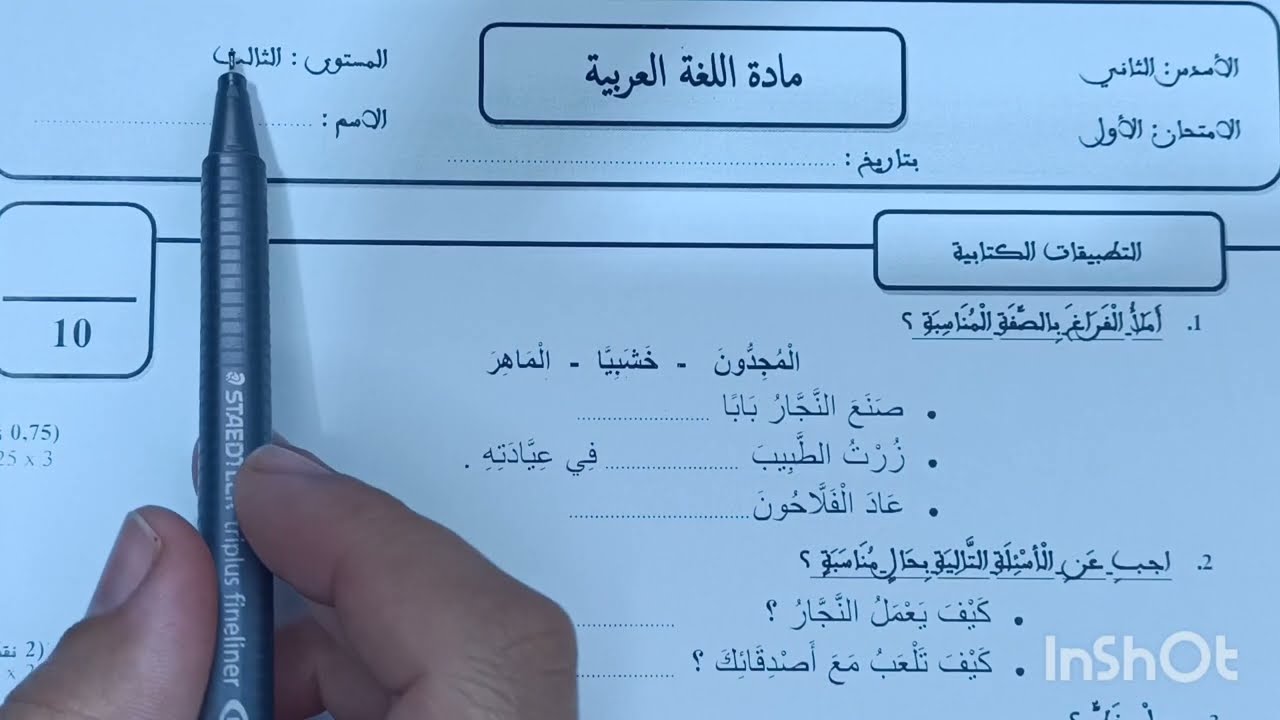 الأسدس: الثاني
مادة اللغة العربية
المستوى : الثالث
الامتحان: الأول
الاسم : ........................
بتاريخ : ........................
التطبيقات الكتابية
10
1. أَمَلأُ الْفَرَاغَ بِالصِّفَةِ الْمُنَاسِبَةِ ؟
الْمُجِدُّونَ - خَشَبِيًّا - الْمَاهِرَ
• صَنَعَ النَّجَّارُ بَابًا ................
0,75)
25 x 3
• زُرْتُ الطَّبِيبَ ................ فِي عِيَّادَتِهِ .
• عَادَ الْفَلَّاحُونَ ................
2. اجب عَنِ الْأَسْئِلَةِ التَّالِيَةِ بِحَالٍ مُنَاسَبَةٍ ؟
• كَيْفَ يَعْمَلُ النَّجَّارُ ؟ ................
• كَيْفَ تَلْعَبُ مَعَ أَصْدِقَائِكَ ؟ ................
STAEDTLER triplus fineliner
InShOt